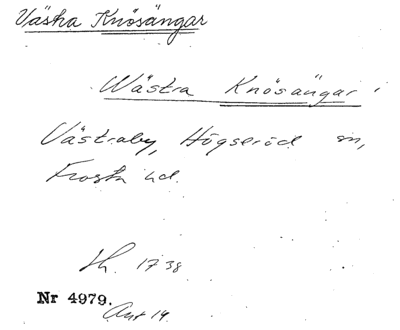 Västra Knösängar
Wästra Knösängar i
Västraby, Högseröd sn,
Frosta hd.
lh. 1738
Nr 4979.
Akt 14